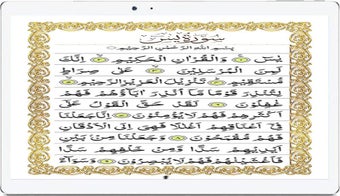 سورة يس
بسم الله الرحمن الرحيم
يس ۝ والقران الحكيم ۝ انك
لمن المرسلين ۝ على صراط
مستقيم ۝ تنزيل العزيز الرحيم ۝
لتنذر قوما ما انذر اباؤهم فهم
غفلون ۝ لقد حق القول على
اكثرهم فهم لا يؤمنون ۝ انا جعلنا
في اعناقهم اغللا فهي الى الاذقان
فهم مقمحون ۝ وجعلنا من بين
ايديهم سدا ومن خلفهم سدا
فاغشينهم فهم لا يبصرون ۝ وسواء